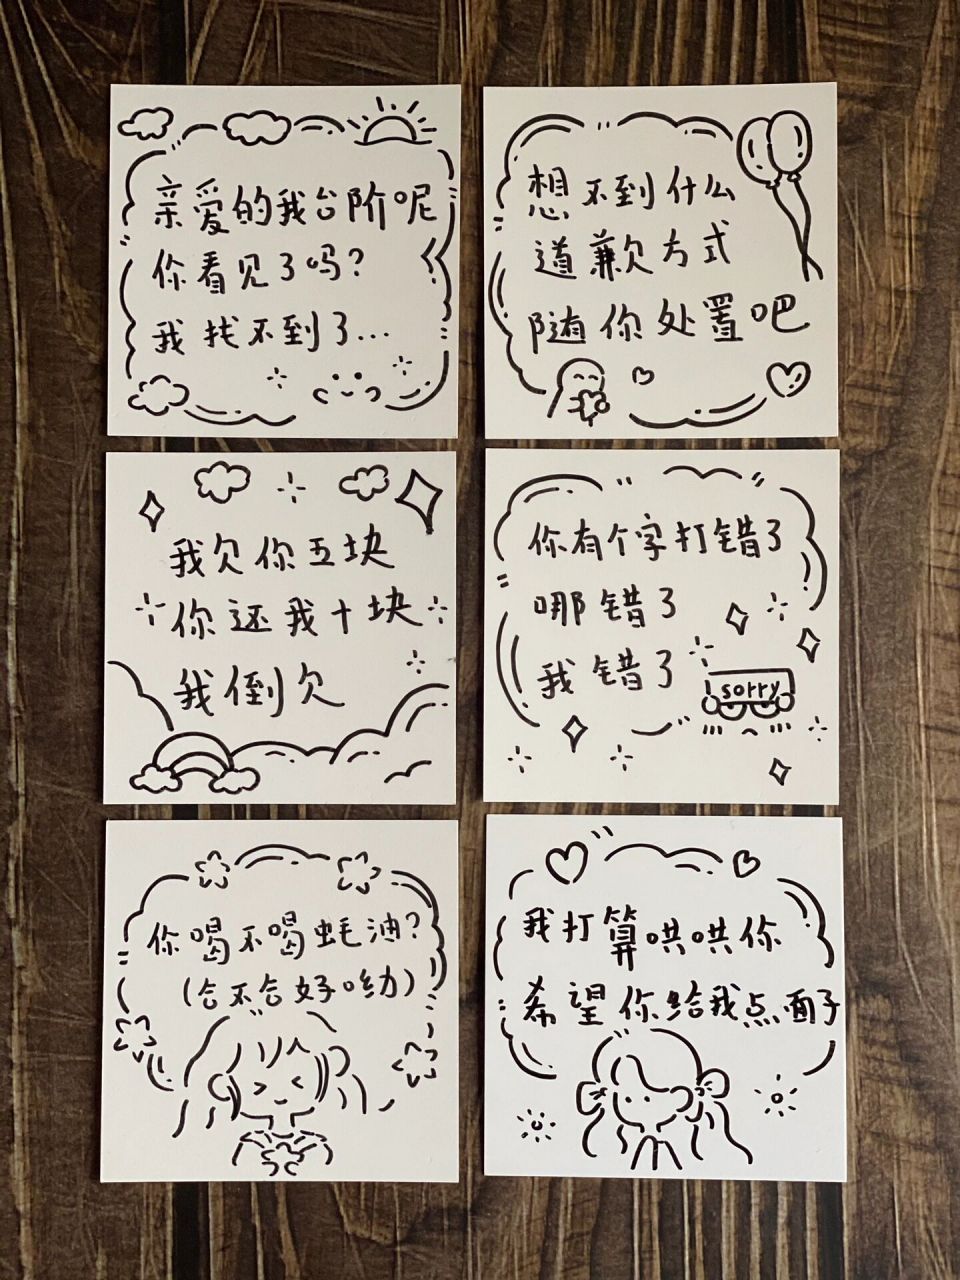 亲爱的我台阶呢
你看见了吗?
我找不到了...
想不到什么
道歉方式
随你处置吧
我欠你五块
你还我十块
我倒欠
你有个字打错了
哪错了
我错了
sorry
你喝不喝蚝油?
(合不合好呦)
我打算哄哄你
希望你给我点面子